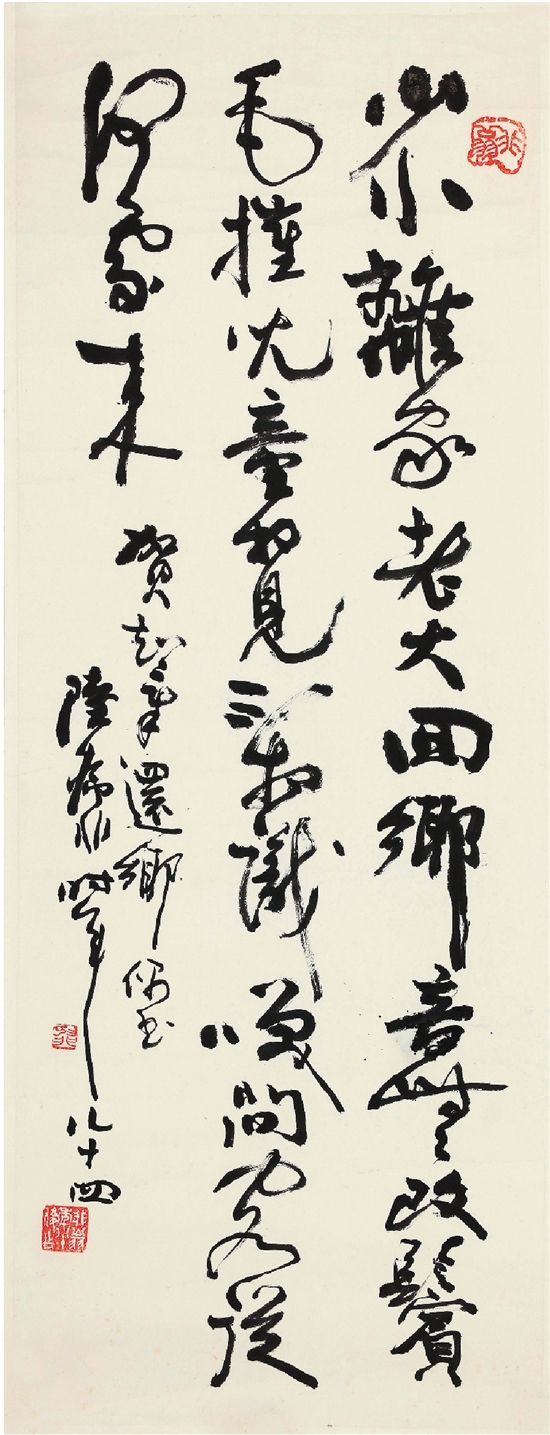 少小離家老大回鄉音無改鬢
毛摧兒童相見不相識咲問客從
何處來
賀知章還鄉偶書
陸抑非時年八十四